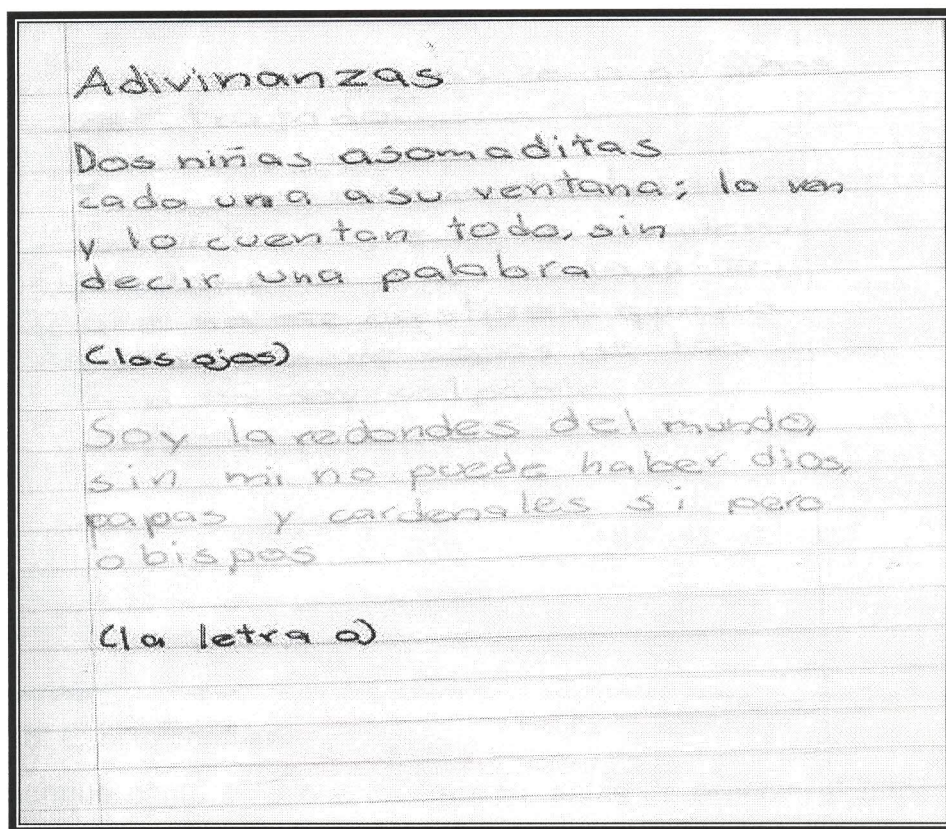 Adivinanzas
Dos niñas asomaditas
cada una a su ventana; lo ven
y lo cuentan todo, sin
decir una palabra
(los ojos)
Soy la redondes del mundo,
sin mi no puede haber dios,
papas y cardenales si pero
obispos
(la letra o)